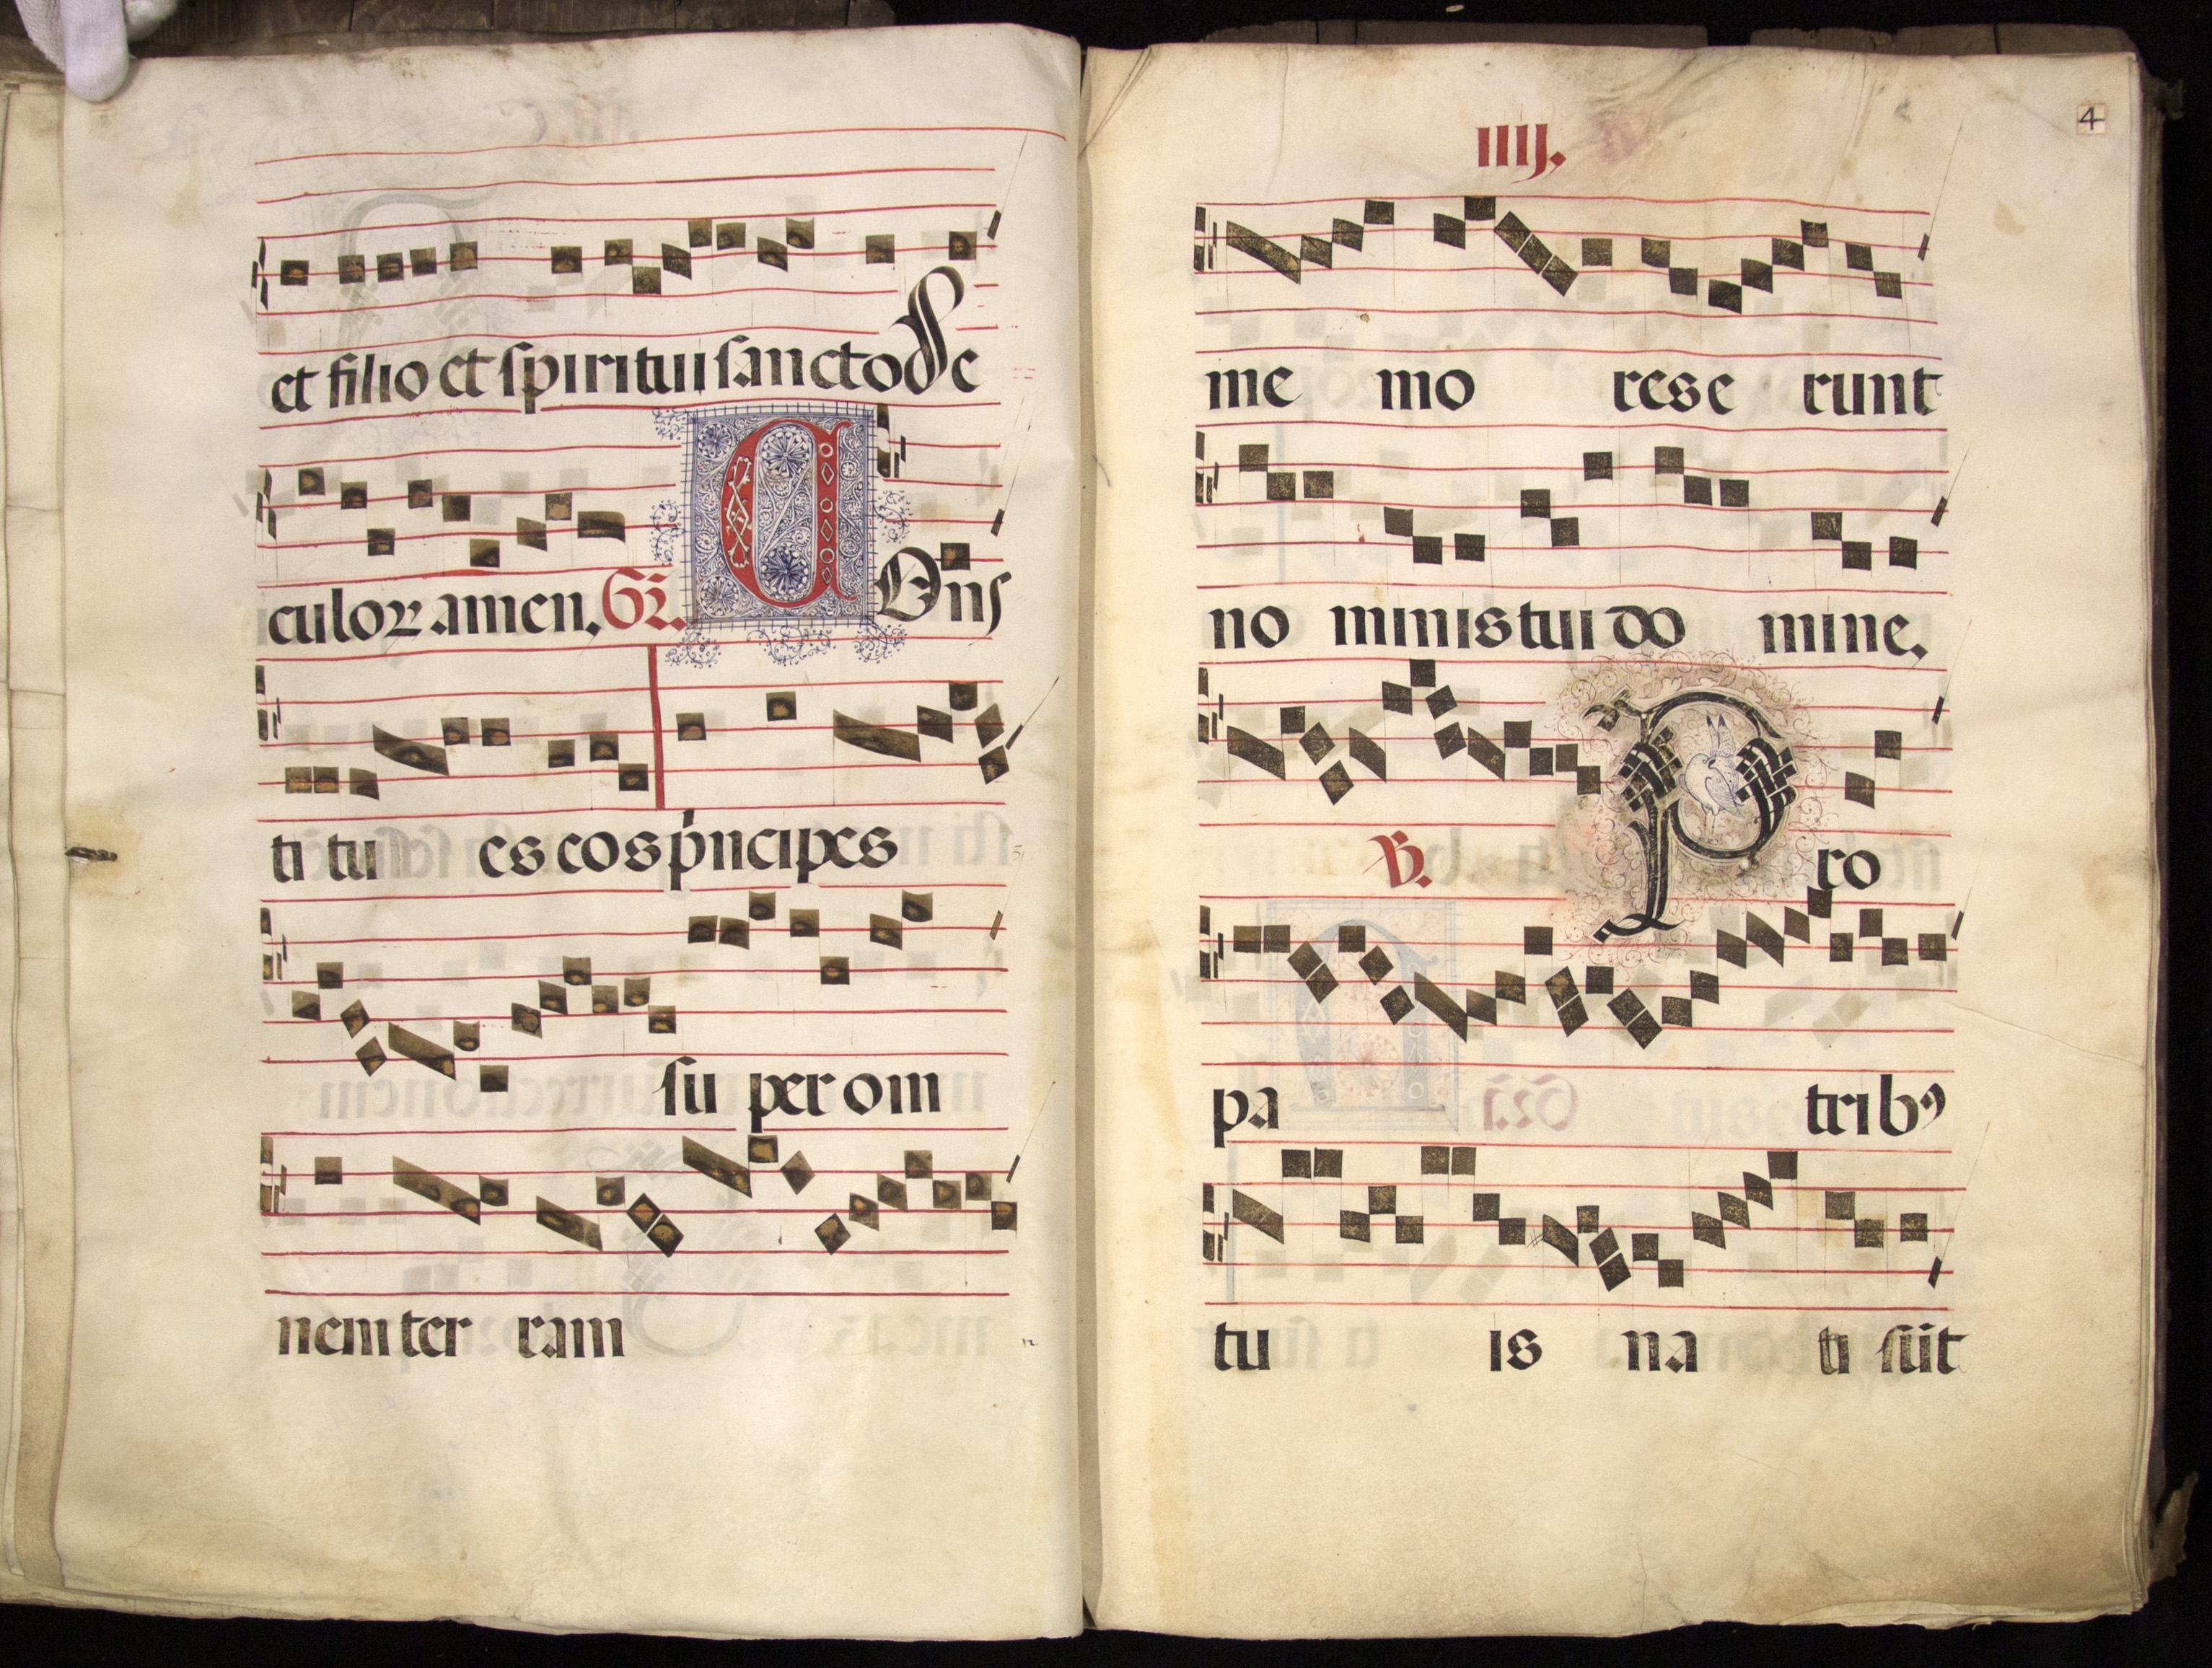 et filio et spiritui sancto Se
culoꝝ amen. Gr̄. COns
ti tu es eos p̍ncipes
su per om
nem ter ram
IIIJ.
4
me mo res e runt
no minis tui do mine.
℣. P ro
pa tribꝰ
tu is na ti sūt